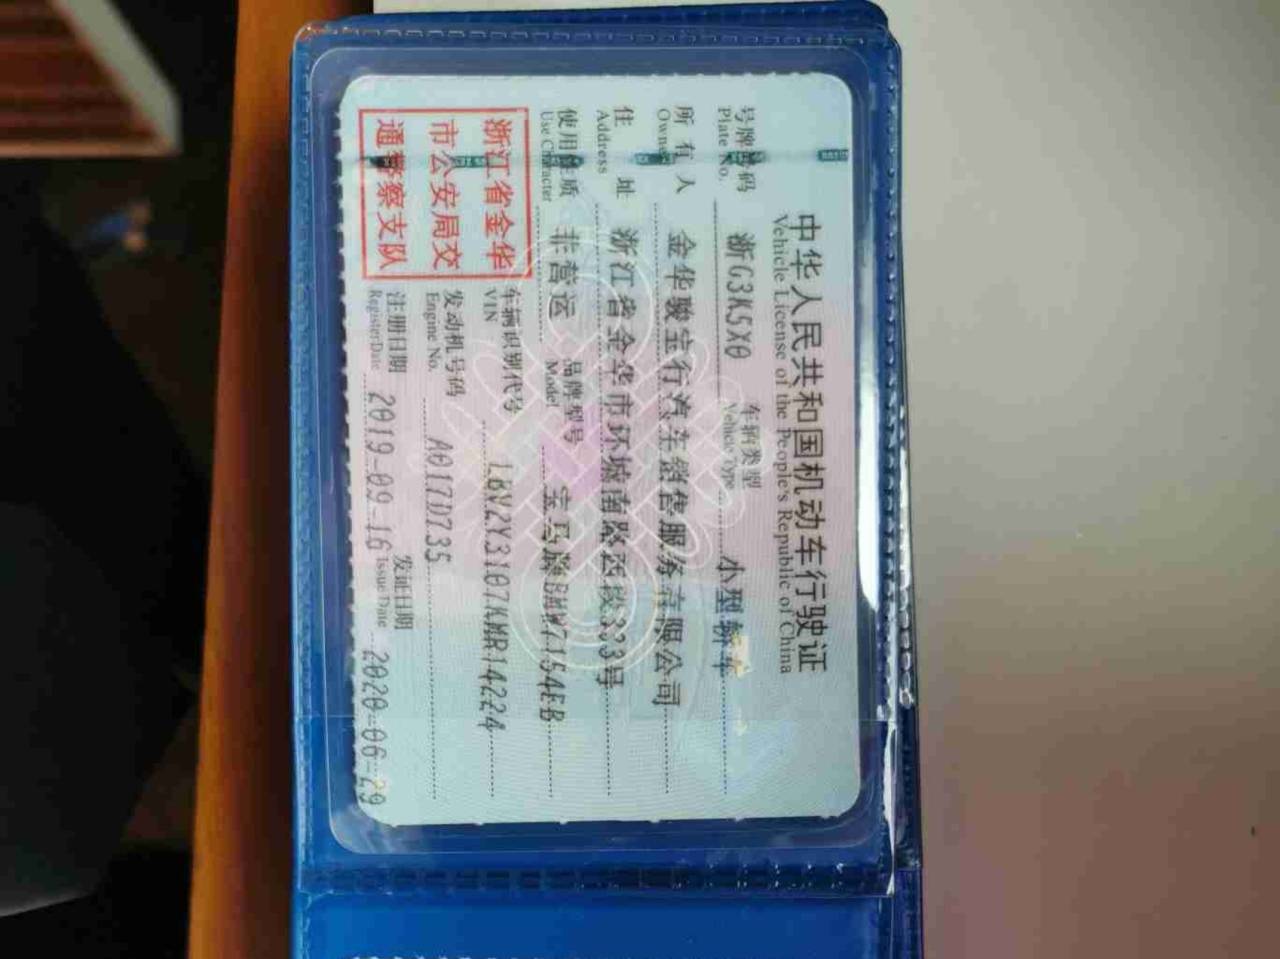 中华人民共和国机动车行驶证
Vehicle License of the People's Republic of China
号牌号码 浙G3K5X0 车辆类型 小型轿车
Plate No. Vehicle Type
所有人 金华骏宝行汽车销售服务有限公司
Owner
住址 浙江省金华市环城南路西段333号
Address
使用性质 非营运 品牌型号 宝马牌BMW7154EB
Use Character Model
浙江省金华
市公安局交
通警察支队
车辆识别代号 LBV2Y3107KMR14224
VIN
发动机号码 A017D735
Engine No.
注册日期 2019-09-16 发证日期 2020-06-29
Register Date Issue Date